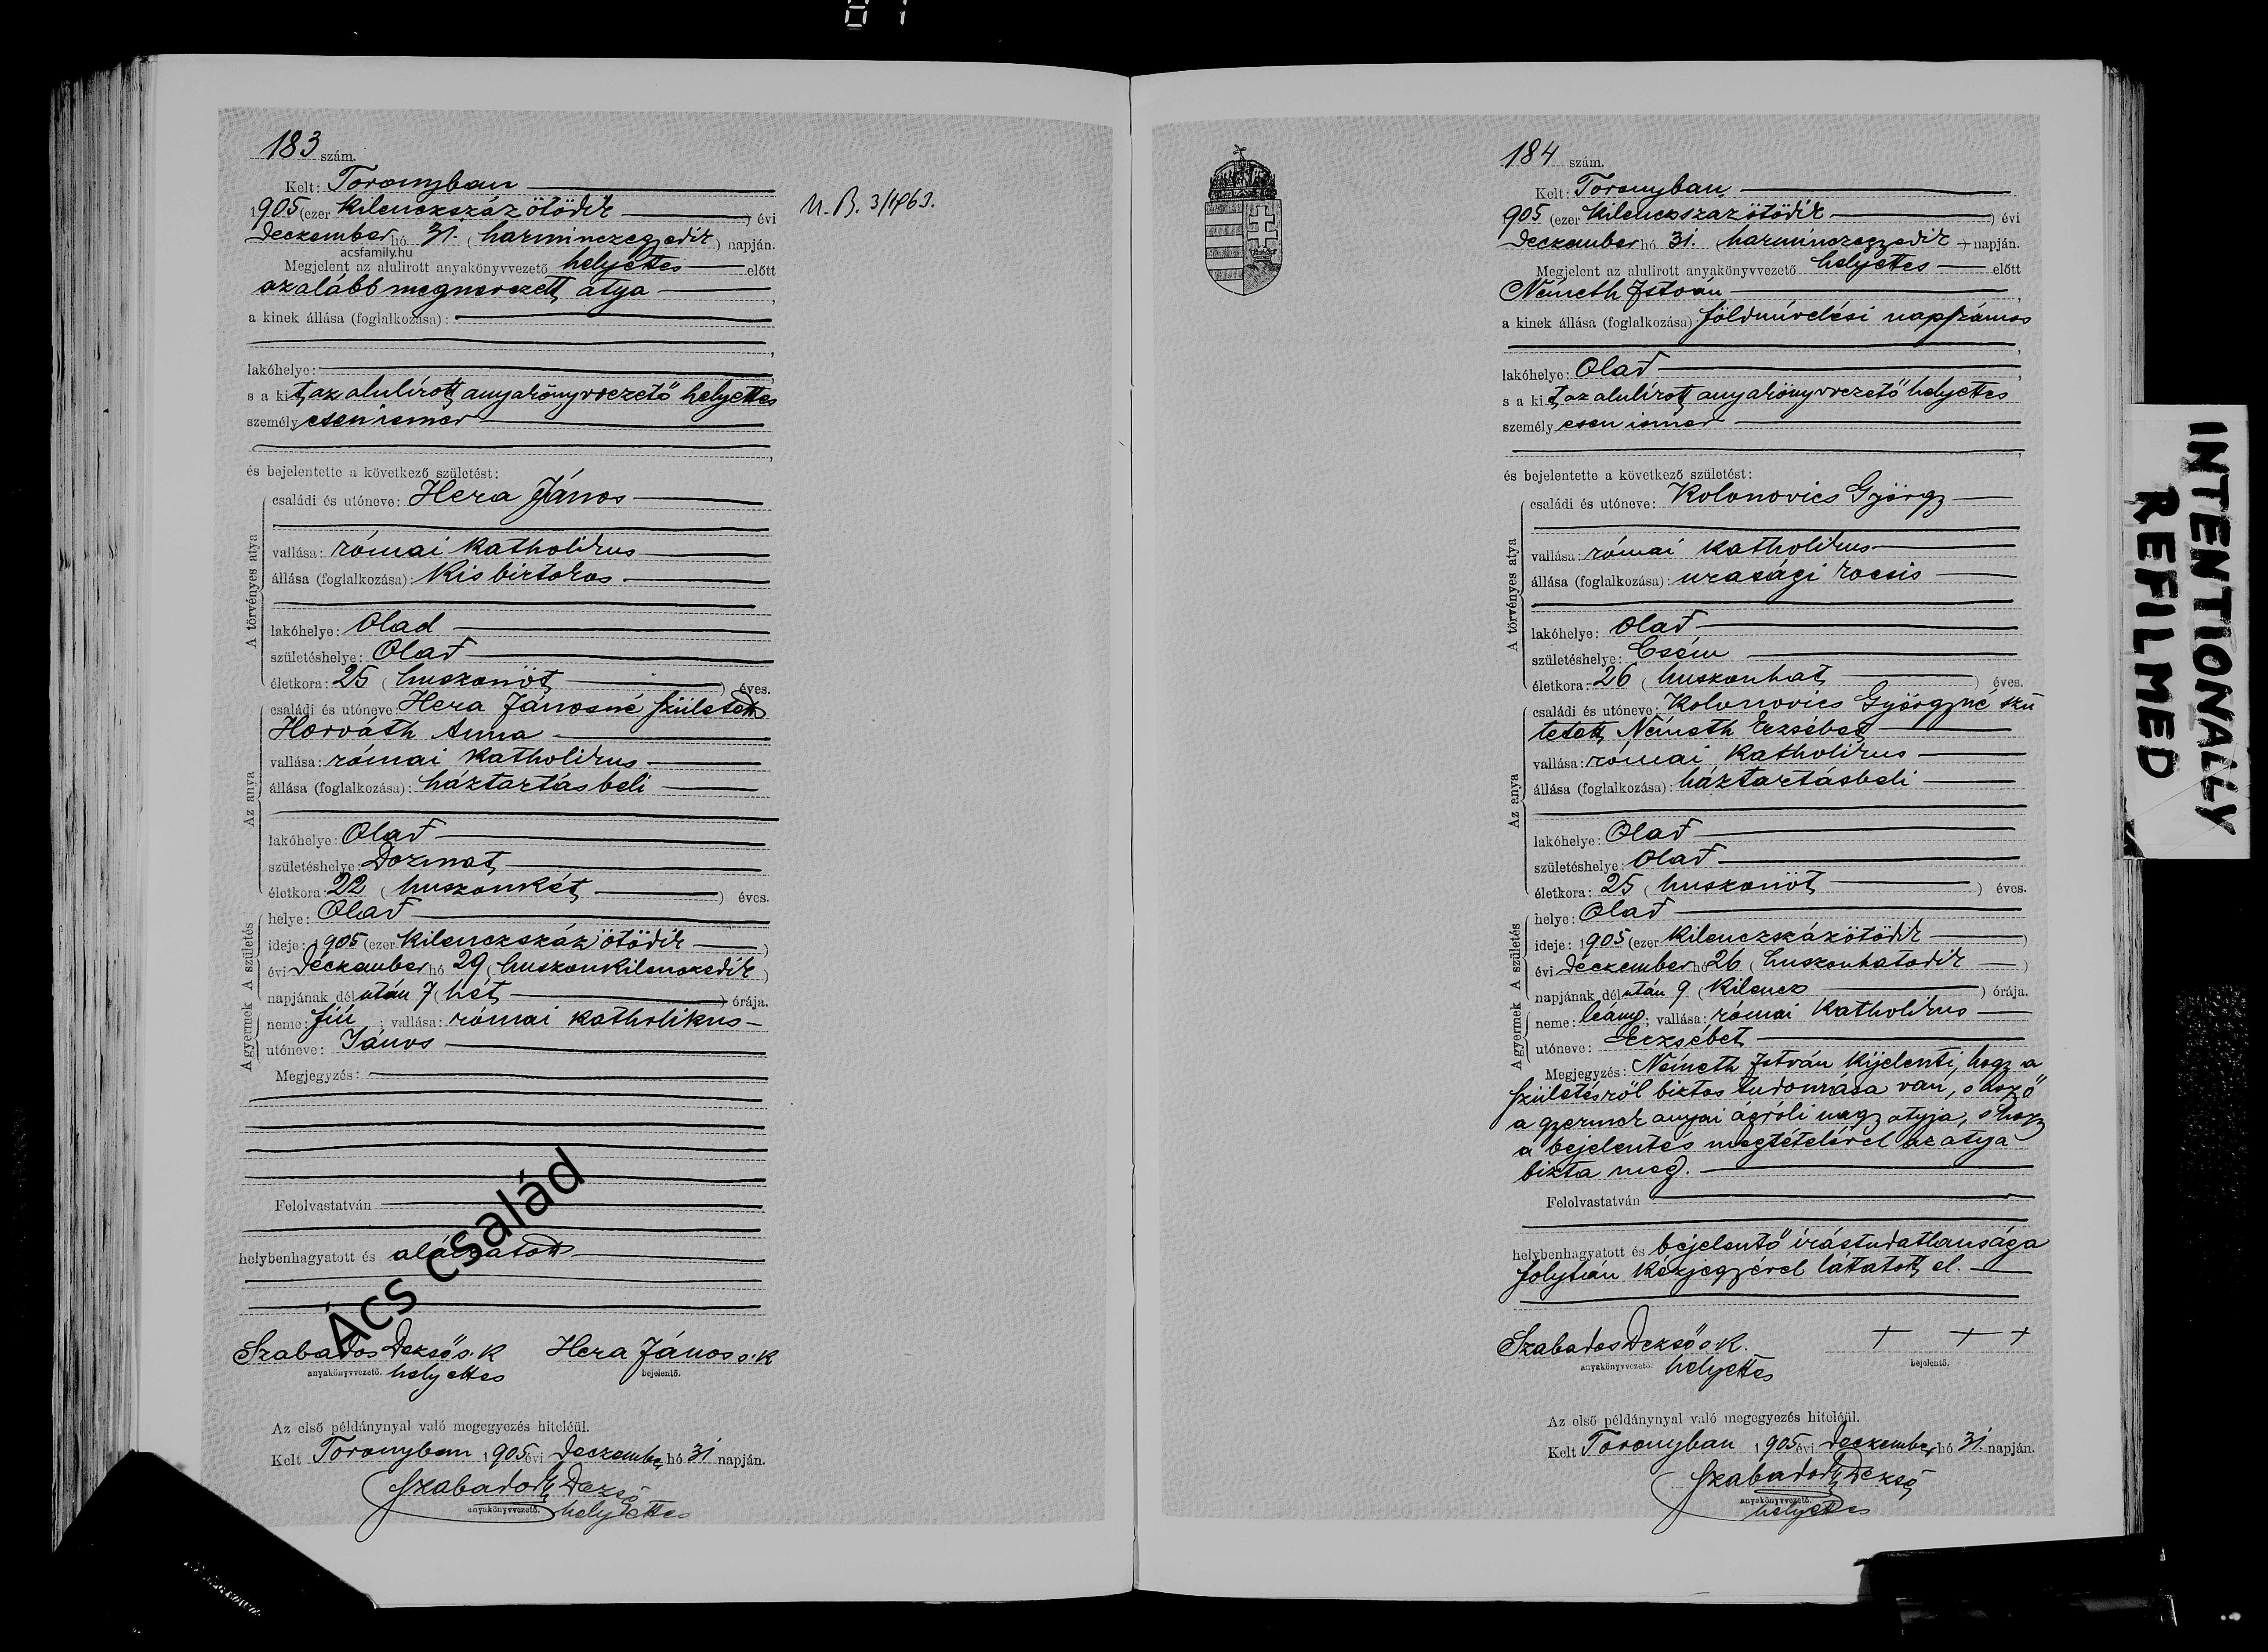 183 szám.
Kelt: Toronyban
1905 (ezer kilenczszáz ötödik) évi
Deczember hó 31. (harminczegyedik) napján.
acsfamily.hu
Megjelent az alulirott anyakönyvvezető helyettes előtt
az alább megnevezett atya,
a kinek állása (foglalkozása):
lakóhelye:
s a kit az alulírott anyakönyvvezető helyettes
személyesen ismer
és bejelentette a következő születést:
A törvényes atya
családi és utóneve: Hera János
vallása: római katholikus
állása (foglalkozása): Kisbirtokos
lakóhelye: Olad
születéshelye: Olad
életkora: 25 (huszonöt) éves.
Az anya
családi és utóneve: Hera Jánosné született
Horváth Anna
vallása: római katholikus
állása (foglalkozása): háztartásbeli
lakóhelye: Olad
születéshelye: Dozmat
életkora: 22 (huszonkét) éves.
A gyermek A születés
helye: Olad
ideje: 1905 (ezer kilenczszáz ötödik)
évi Deczember hó 29 (huszonkilenczedik)
napjának délután 7 (hét) órája.
neme: fiú; vallása: római katholikus
utóneve: János
Megjegyzés:
Felolvastatván
helybenhagyatott és aláíratott
Ács család
Szabados Dezső s. k Hera János s. k
anyakönyvvezető. helyettes bejelentő.
Az első példánynyal való megegyezés hiteléül.
Kelt Toronyban 1905 évi Deczember hó 31 napján.
Szabados Dezső
anyakönyvvezető. helyettes
U. B. 3/1963.
184 szám.
Kelt: Toronyban
905 (ezer kilenczszázötödik) évi
Deczember hó 31. (harminczegyedik) napján.
Megjelent az alulirott anyakönyvvezető helyettes előtt
Németh István,
a kinek állása (foglalkozása): földmívelési napszámos
lakóhelye: Olad
s a kit az alulírott anyakönyvvezető helyettes
személyesen ismer
és bejelentette a következő születést:
A törvényes atya
családi és utóneve: Kolonovics György
vallása: római katholikus
állása (foglalkozása): urasági kocsis
lakóhelye: Olad
születéshelye: Csém
életkora: 26 (huszonhat) éves.
Az anya
családi és utóneve: Kolonovics Györgyné szü
letett Németh Erzsébet
vallása: római katholikus
állása (foglalkozása): háztartásbeli
lakóhelye: Olad
születéshelye: Olad
életkora: 25 (huszonöt) éves.
A gyermek A születés
helye: Olad
ideje: 1905 (ezer kilenczszázötödik)
évi Deczember hó 26 (huszonhatodik)
napjának délután 9 (kilencz) órája.
neme: leány; vallása: római katholikus
utóneve: Erzsébet
Megjegyzés: Németh István kijelenti, hogy a
születésről biztos tudomása van, s hogy ő
a gyermek anyai ágróli nagyatyja, s hogy
a bejelentés megtételével az atya
bizta meg.
Felolvastatván
helybenhagyatott és bejelentő írástudatlansága
folytán kézjegyével láttatott el.
Szabados Dezső s. k. + + +
anyakönyvvezető. helyettes bejelentő.
Az első példánynyal való megegyezés hiteléül.
Kelt Toronyban 1905 évi Deczember hó 31. napján.
Szabados Dezső
anyakönyvvezető.
helyettes
INTENTIONALLY
REFILMED